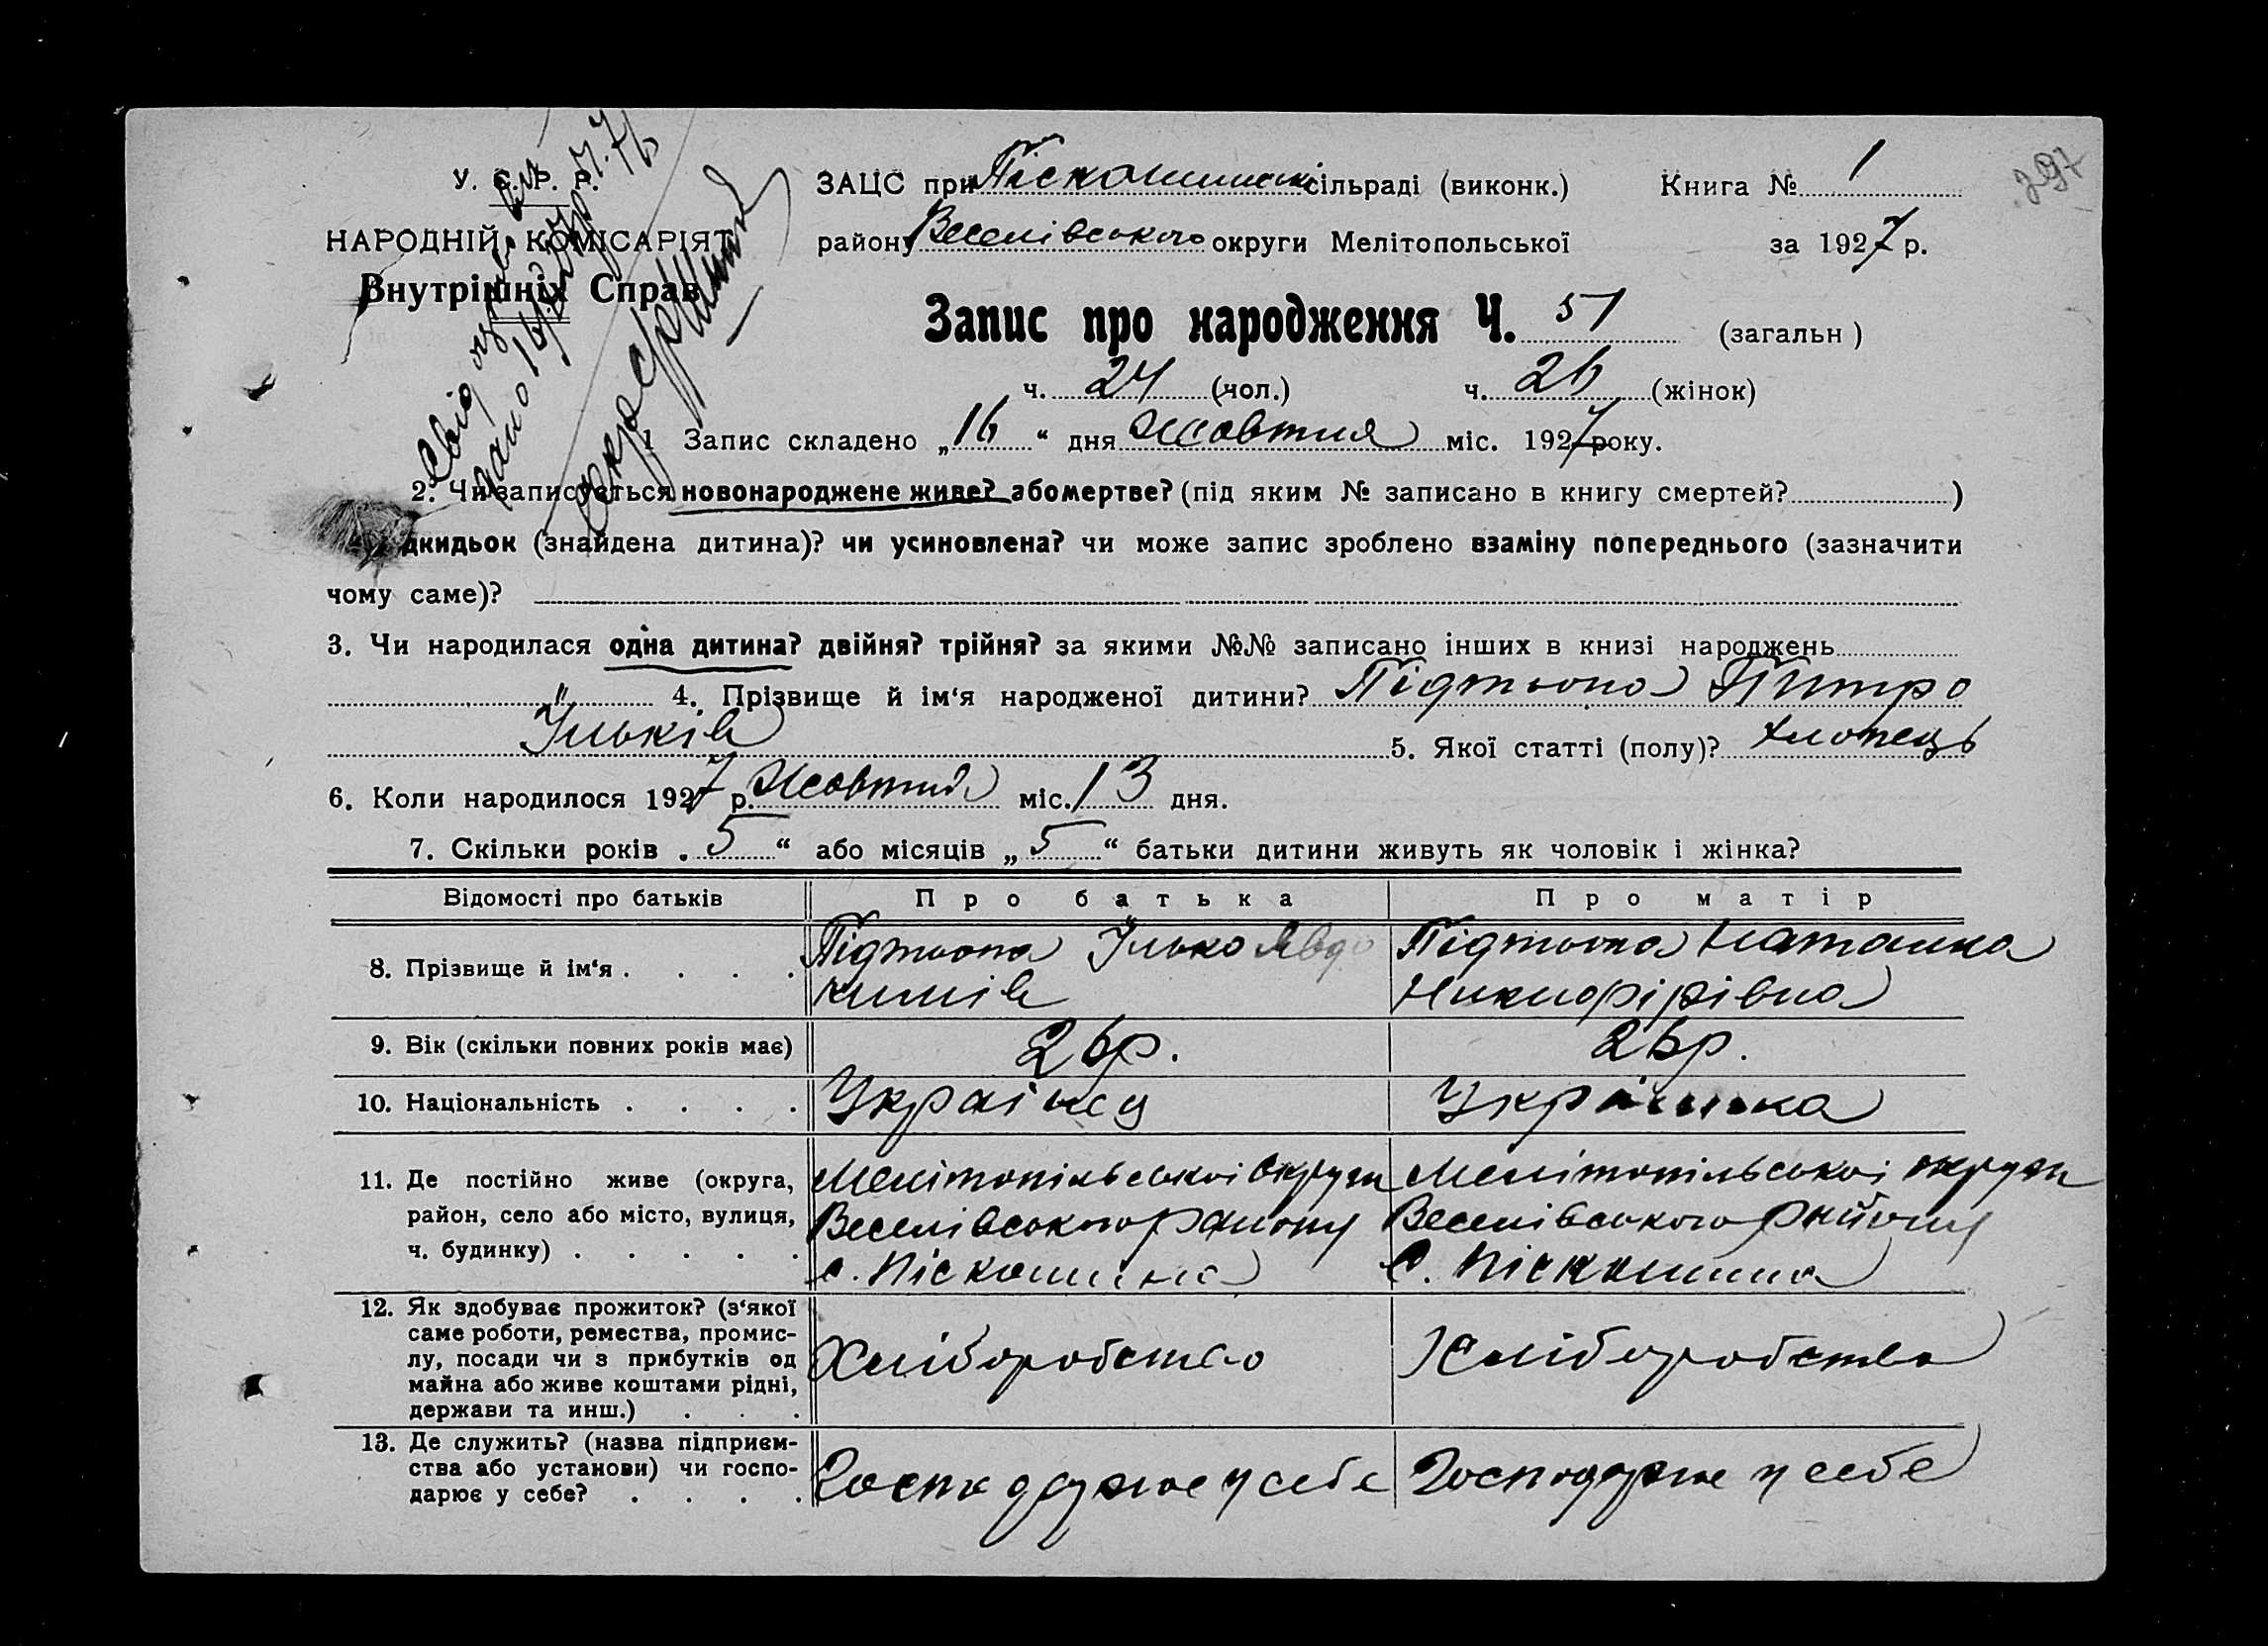 У. С. Р. Р.
НАРОДНІЙ КОМІСАРІЯТ
Внутрішніх Справ
ЗАЦС при Піскошинськ сільраді (виконк.) Книга № 1
397
району Веселівського округи Мелітопольської за 1927 р.
Запис про народження Ч. 51 (загальн )
ч. 24 (чол.) ч. 26 (жінок)
1 Запис складено „16“ дня Жовтня міс. 1927 року.
2. Чи записується новонароджене живе? або мертве? (під яким № записано в книгу смертей? )
дкидьок (знайдена дитина)? чи усиновлена? чи може запис зроблено взаміну попереднього (зазначити
чому саме)?
3. Чи народилася одна дитина? двійня? трійня? за якими №№ записано інших в книзі народжень
" 4. Прізвище й ім‘я народженої дитини? Підтьопа Питро
Ільків 5. Якої статті (полу)? хлопець
6. Коли народилося 1927 р. Жовтня міс. 13 дня.
7. Скільки років „5“ або місяців „5“ батьки дитини живуть як чоловік і жінка?
Відомості про батьків Про батька Про матір
8. Прізвище й ім‘я . . . . Підтьопа Ілько Явдо
кимів
Підтьопа Наталка
Никифорівна
9. Вік (скільки повних років має) 26р. 26р.
10. Національність . . . . Українец Українка
11. Де постійно живе (округа,
район, село або місто, вулиця,
ч. будинку) . . . . .
Мелітопільської округи
Веселівського району
с. Піскошина
Мелітопільської округи
Веселівського району
С. Піскошина
12. Як здобуває прожиток? (з‘якої
саме роботи, ремества, промис-
лу, посади чи з прибутків од
майна або живе коштами рідні,
держави та инш.) . . .
Хліборобство
Хліборобства
13. Де служить? (назва підприєм-
ства або установи) чи госпо-
дарює у себе? . . . .
Господарює у себе
Господарює у себе